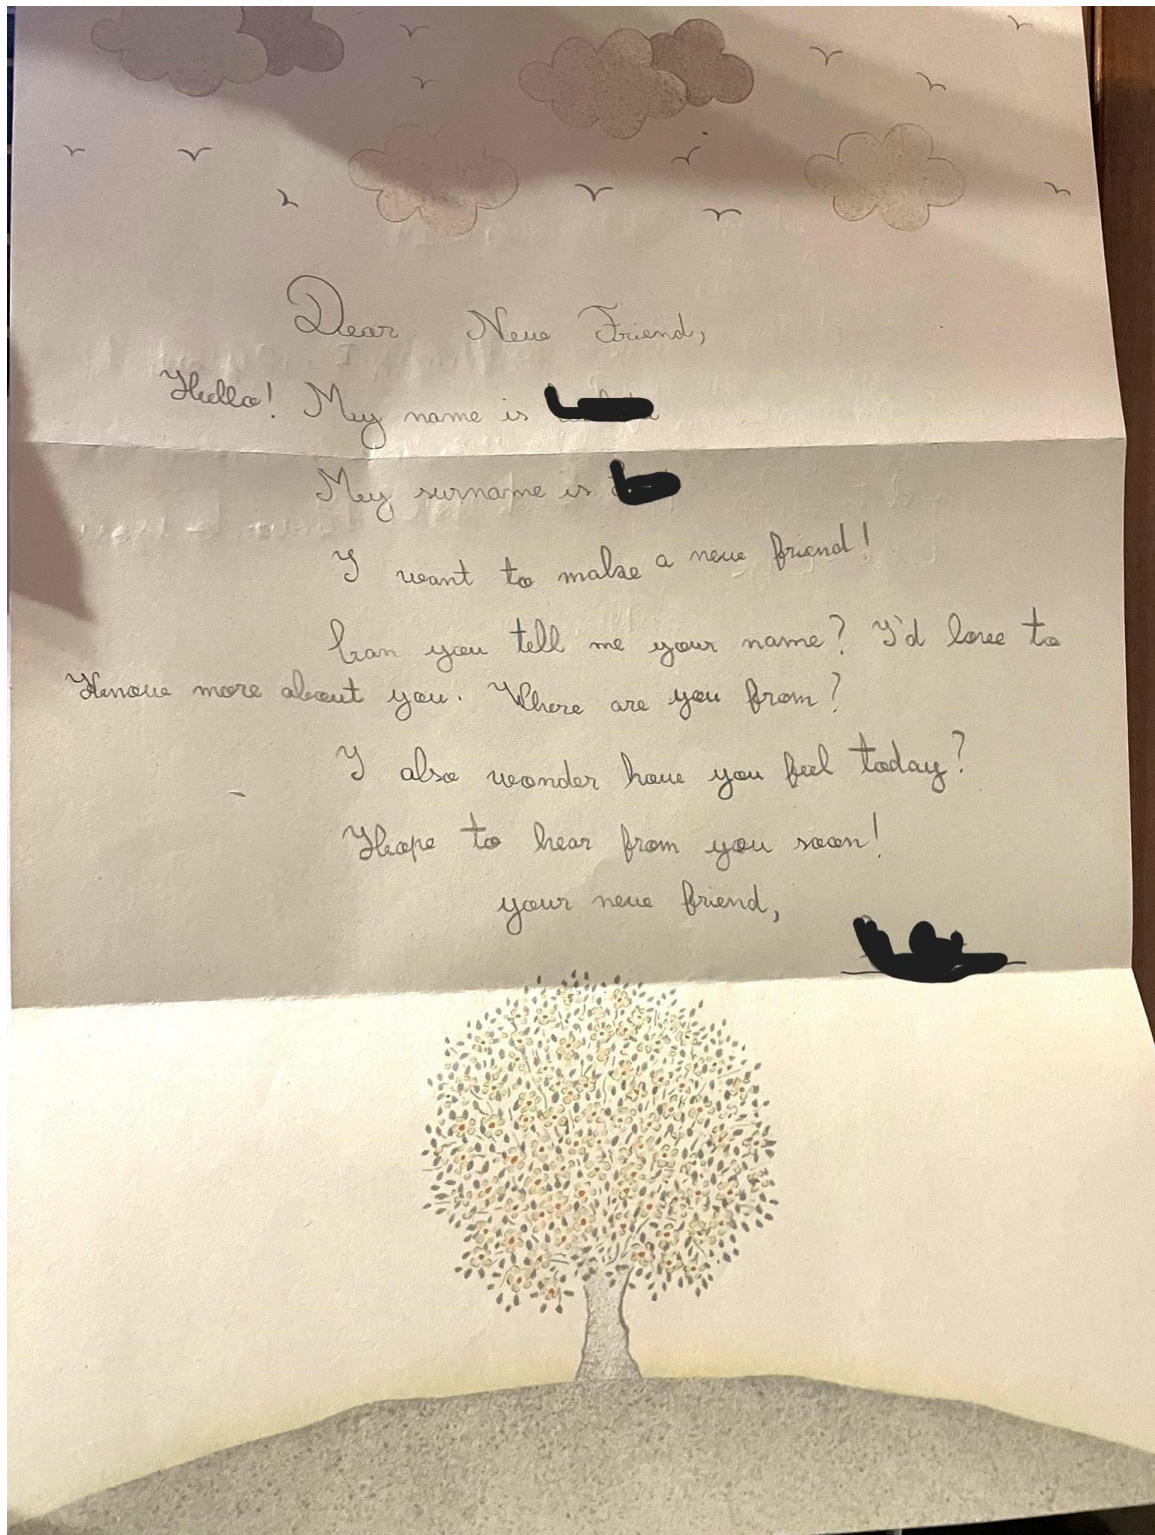 Dear New Friend,
Hello! My name is
My surname is
I want to make a new friend!
Can you tell me your name? I'd love to
Know more about you. Where are you from?
I also wonder how you feel today?
Hope to hear from you soon!
your new friend,